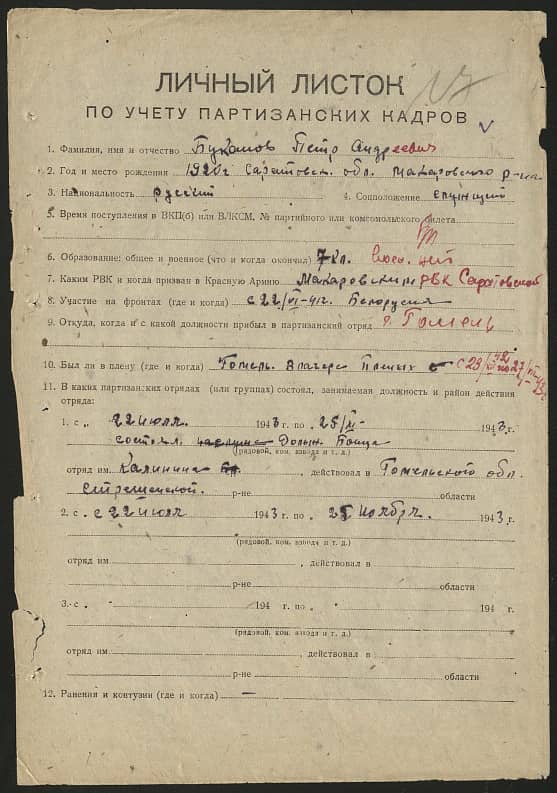 ЛИЧНЫЙ ЛИСТОК
ПО УЧЕТУ ПАРТИЗАНСКИХ КАДРОВ
1. Фамилия, имя и отчество Буканов Петр Андреевич
2. Год и место рождения 1920г Саратовск. обл. Макаровского р-на
3. Национальность русский 4. Соцположение служащий
5. Время поступления в ВКП(б) или ВЛКСМ, № партийного или комсомольского билета
6. Образование: общее и военное (что и когда окончил) 7 кл. Воен. нет
7. Каким РВК и когда призван в Красную Армию Макаровским РВК Саратовской
8. Участие на фронтах (где и когда) с 22/VI-41г. Белорусия
9. Откуда, когда и с какой должности прибыл в партизанский отряд г. Гомель
10. Был ли в плену (где и когда) Гомель. В лагере Пленых с
11. В каких партизанских отрядах (или группах) состоял, занимаемая должность и район действия
отряда:
1. с „ 22 июля 1943 г. по „ 25/XI- 1943 г.
состоял Должн. Бойца
(рядовой, ком. взвода и т. д.)
отряд им. Калинина , действовал в Гомельского обл.
р-не области
2. с „ с 22 июля 1943 г. по „ 25 ноября. 1943 г.
(рядовой, ком. взвода и т. д.)
отряд им. , действовал в
р-не области
3. с „ 194 г. по „ " 194 г.
(рядовой, ком. взвода и т. д.)
отряд им. , действовал в
р-не области
12. Ранения и контузии (где и когда) —